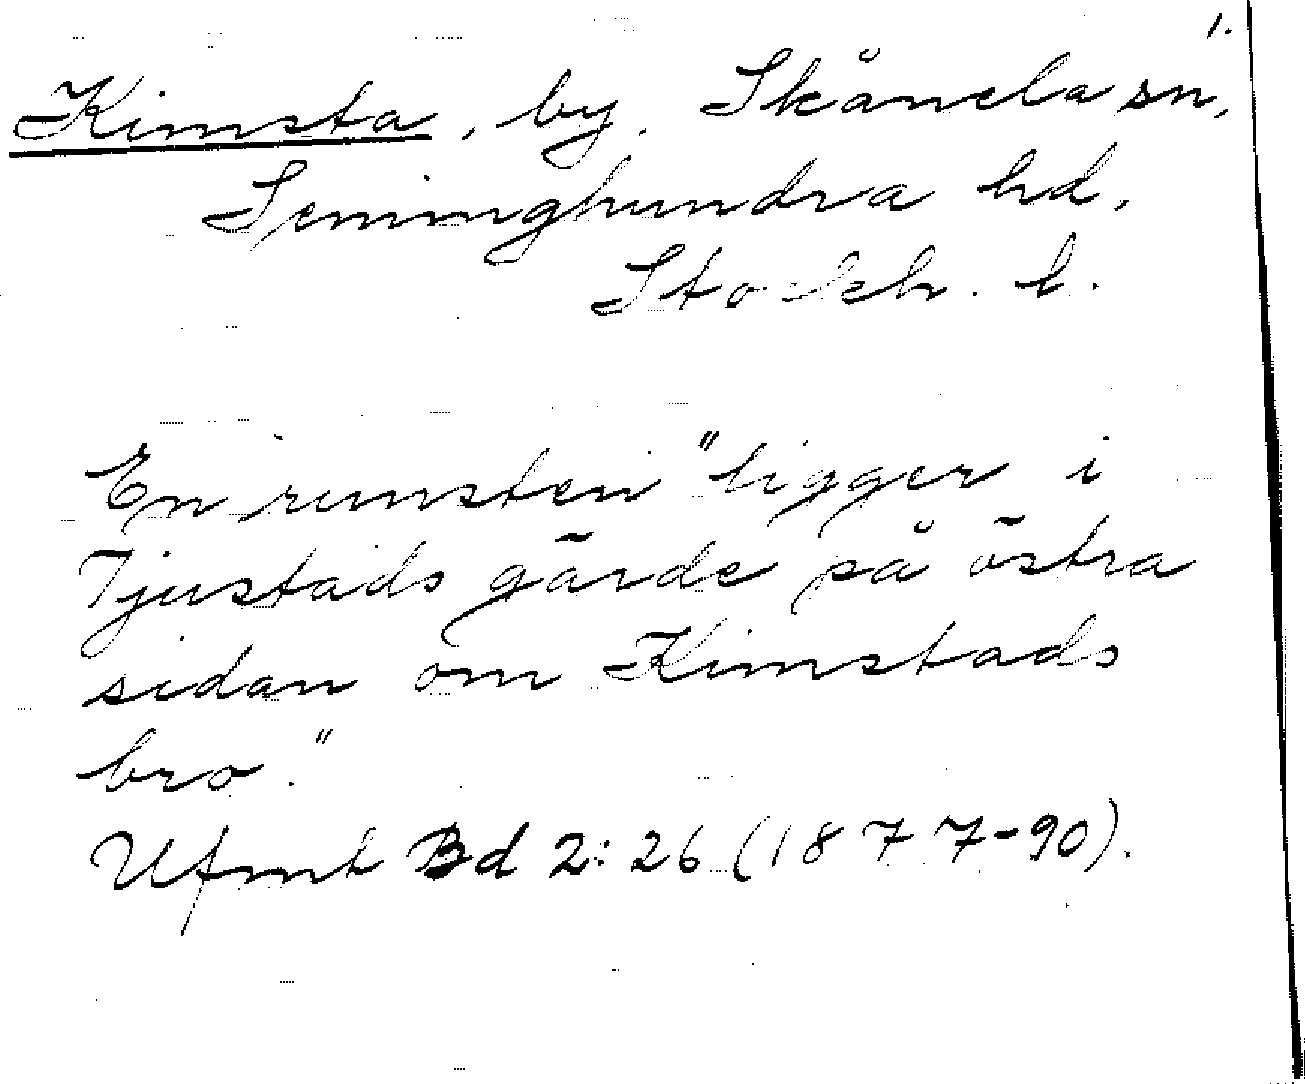 1.
Kimsta, by, Skånela sn,
Seminghundra hd,
Stockh. l.
En runsten "ligger i
Tjustads gärde på östra
sidan om Kimstads
bro."
Ufmt Bd 2: 26 (1877-90).